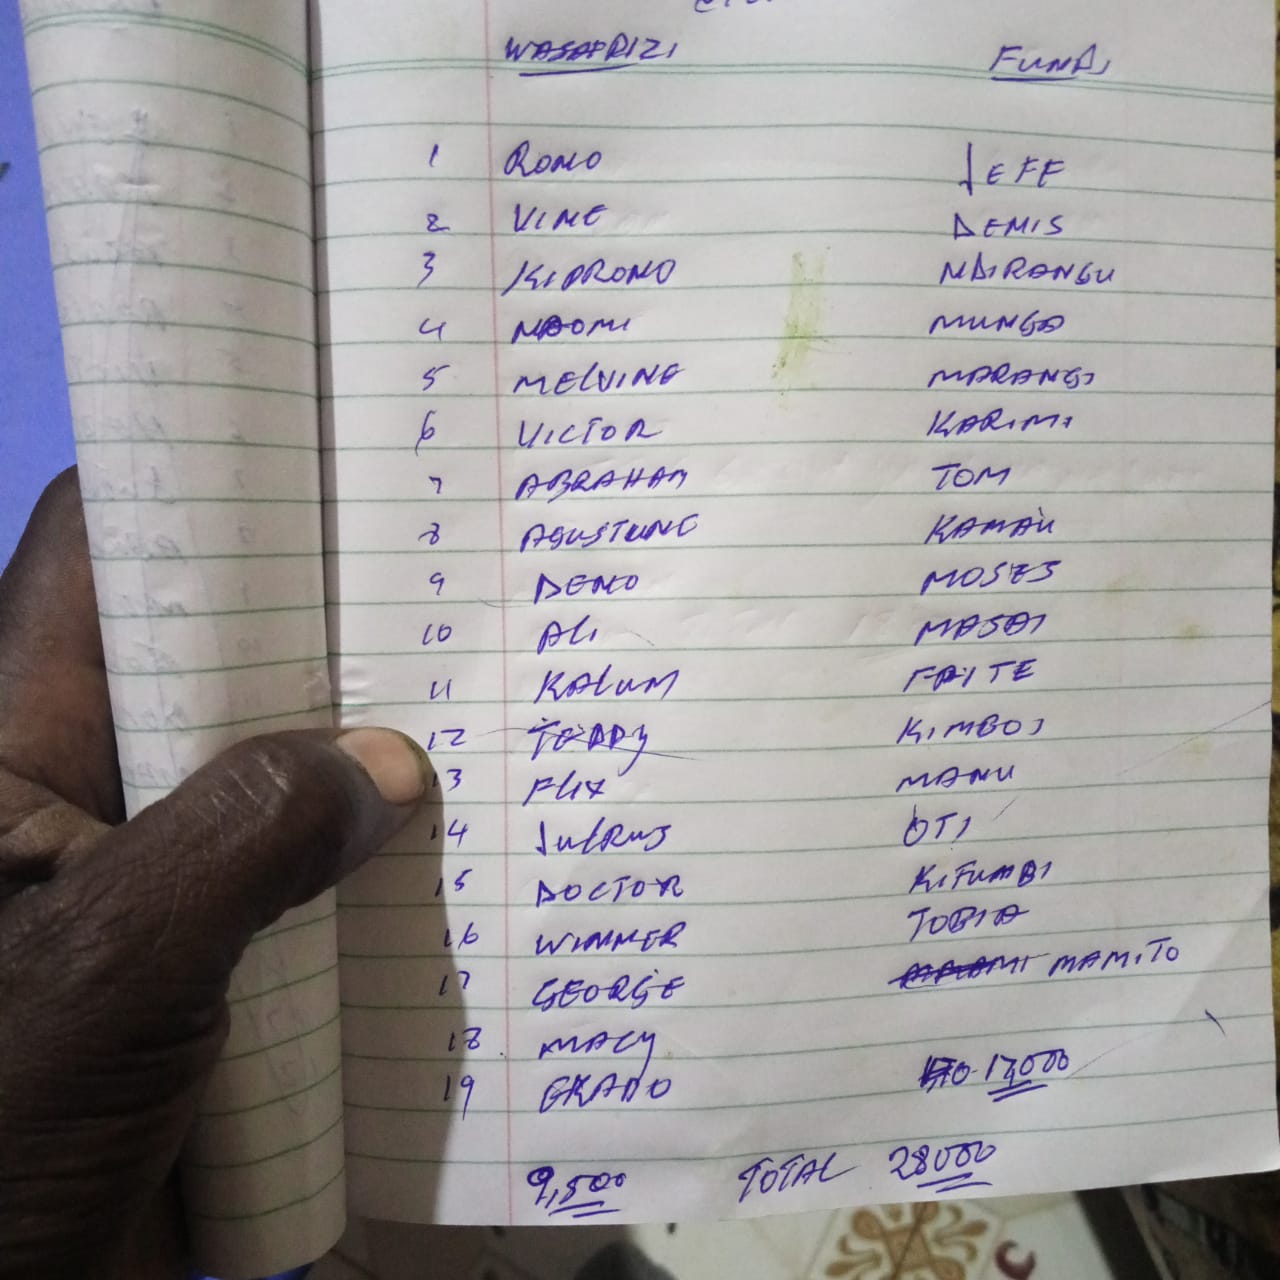 WASAPRIZI FUNDI
1 RONO JEFF
2 VINE DEMIS
3 KIPRONO NDIRANGU
4 NAOMI MUNGO
5 MELVINE MARANGI
6 VICTOR KARIMI
7 ABRAHAM TOM
8 AGUSTUNE KAMAU
9 DENO MOSES
10 ALI MASAI
11 KALUM FAITE
12 TEDDY KIMBOI
13 FLIX MANU
14 OTI
15 DOCTOR KITUMBI
16 WINNER TOBIA
17 GEORGE MAMITO
18 MACY
19 17,000
9,500 TOTAL 28000